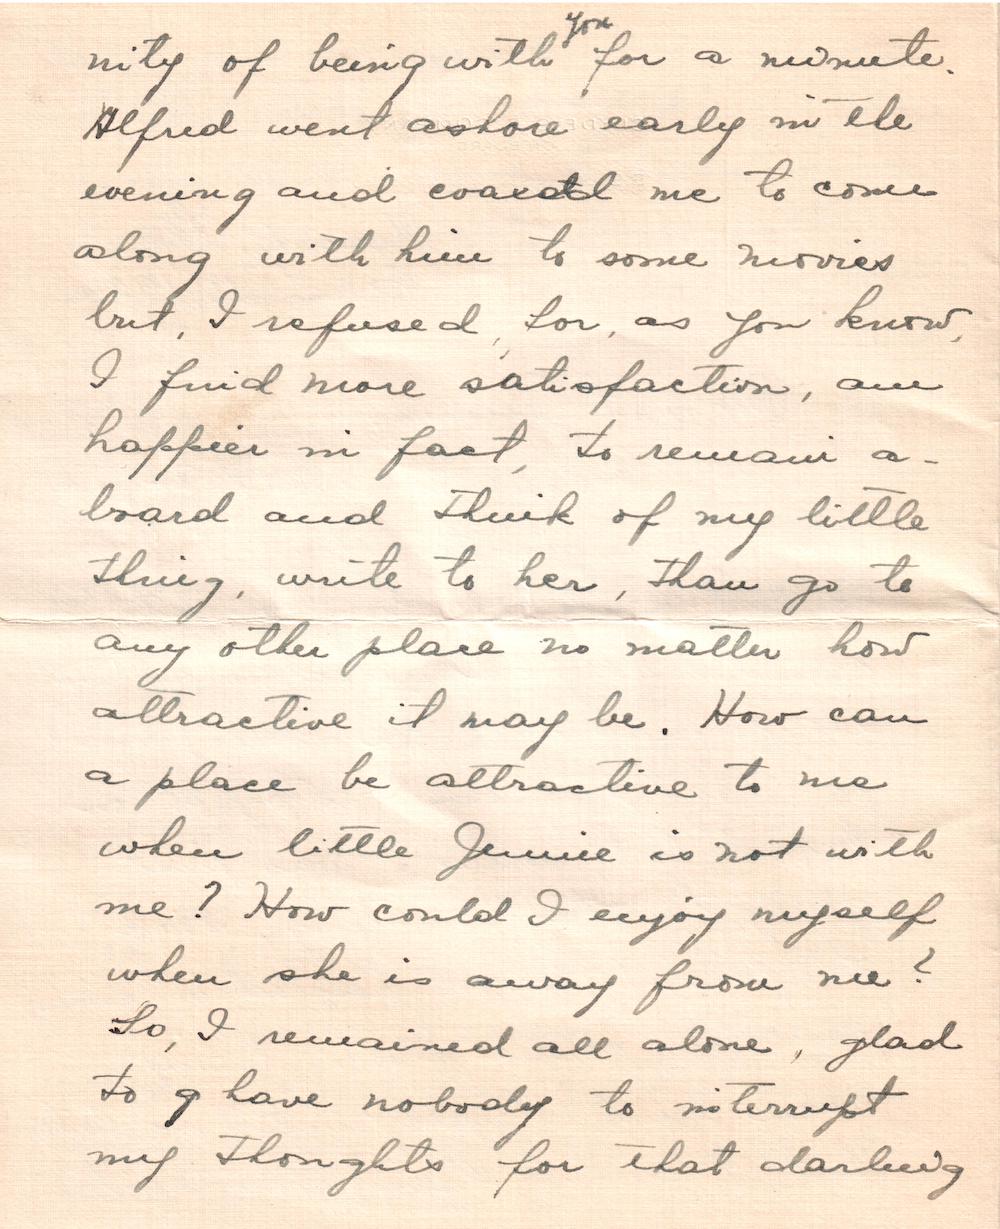 nity of being with you for a minute.
Alfred went ashore early in the
evening and coaxed me to come
along with him to some movies
but, I refused, for, as you know,
I find more satisfaction, am
happier in fact, to remain a-
board and think of my little
thing, write to her, than go to
any other place no matter how
attractive it may be. How can
a place be attractive to me
when little Jennie is not with
me? How could I enjoy myself
when she is away from me?
So, I remained all alone, glad
to g have nobody to interrupt
my thoughts for that darling